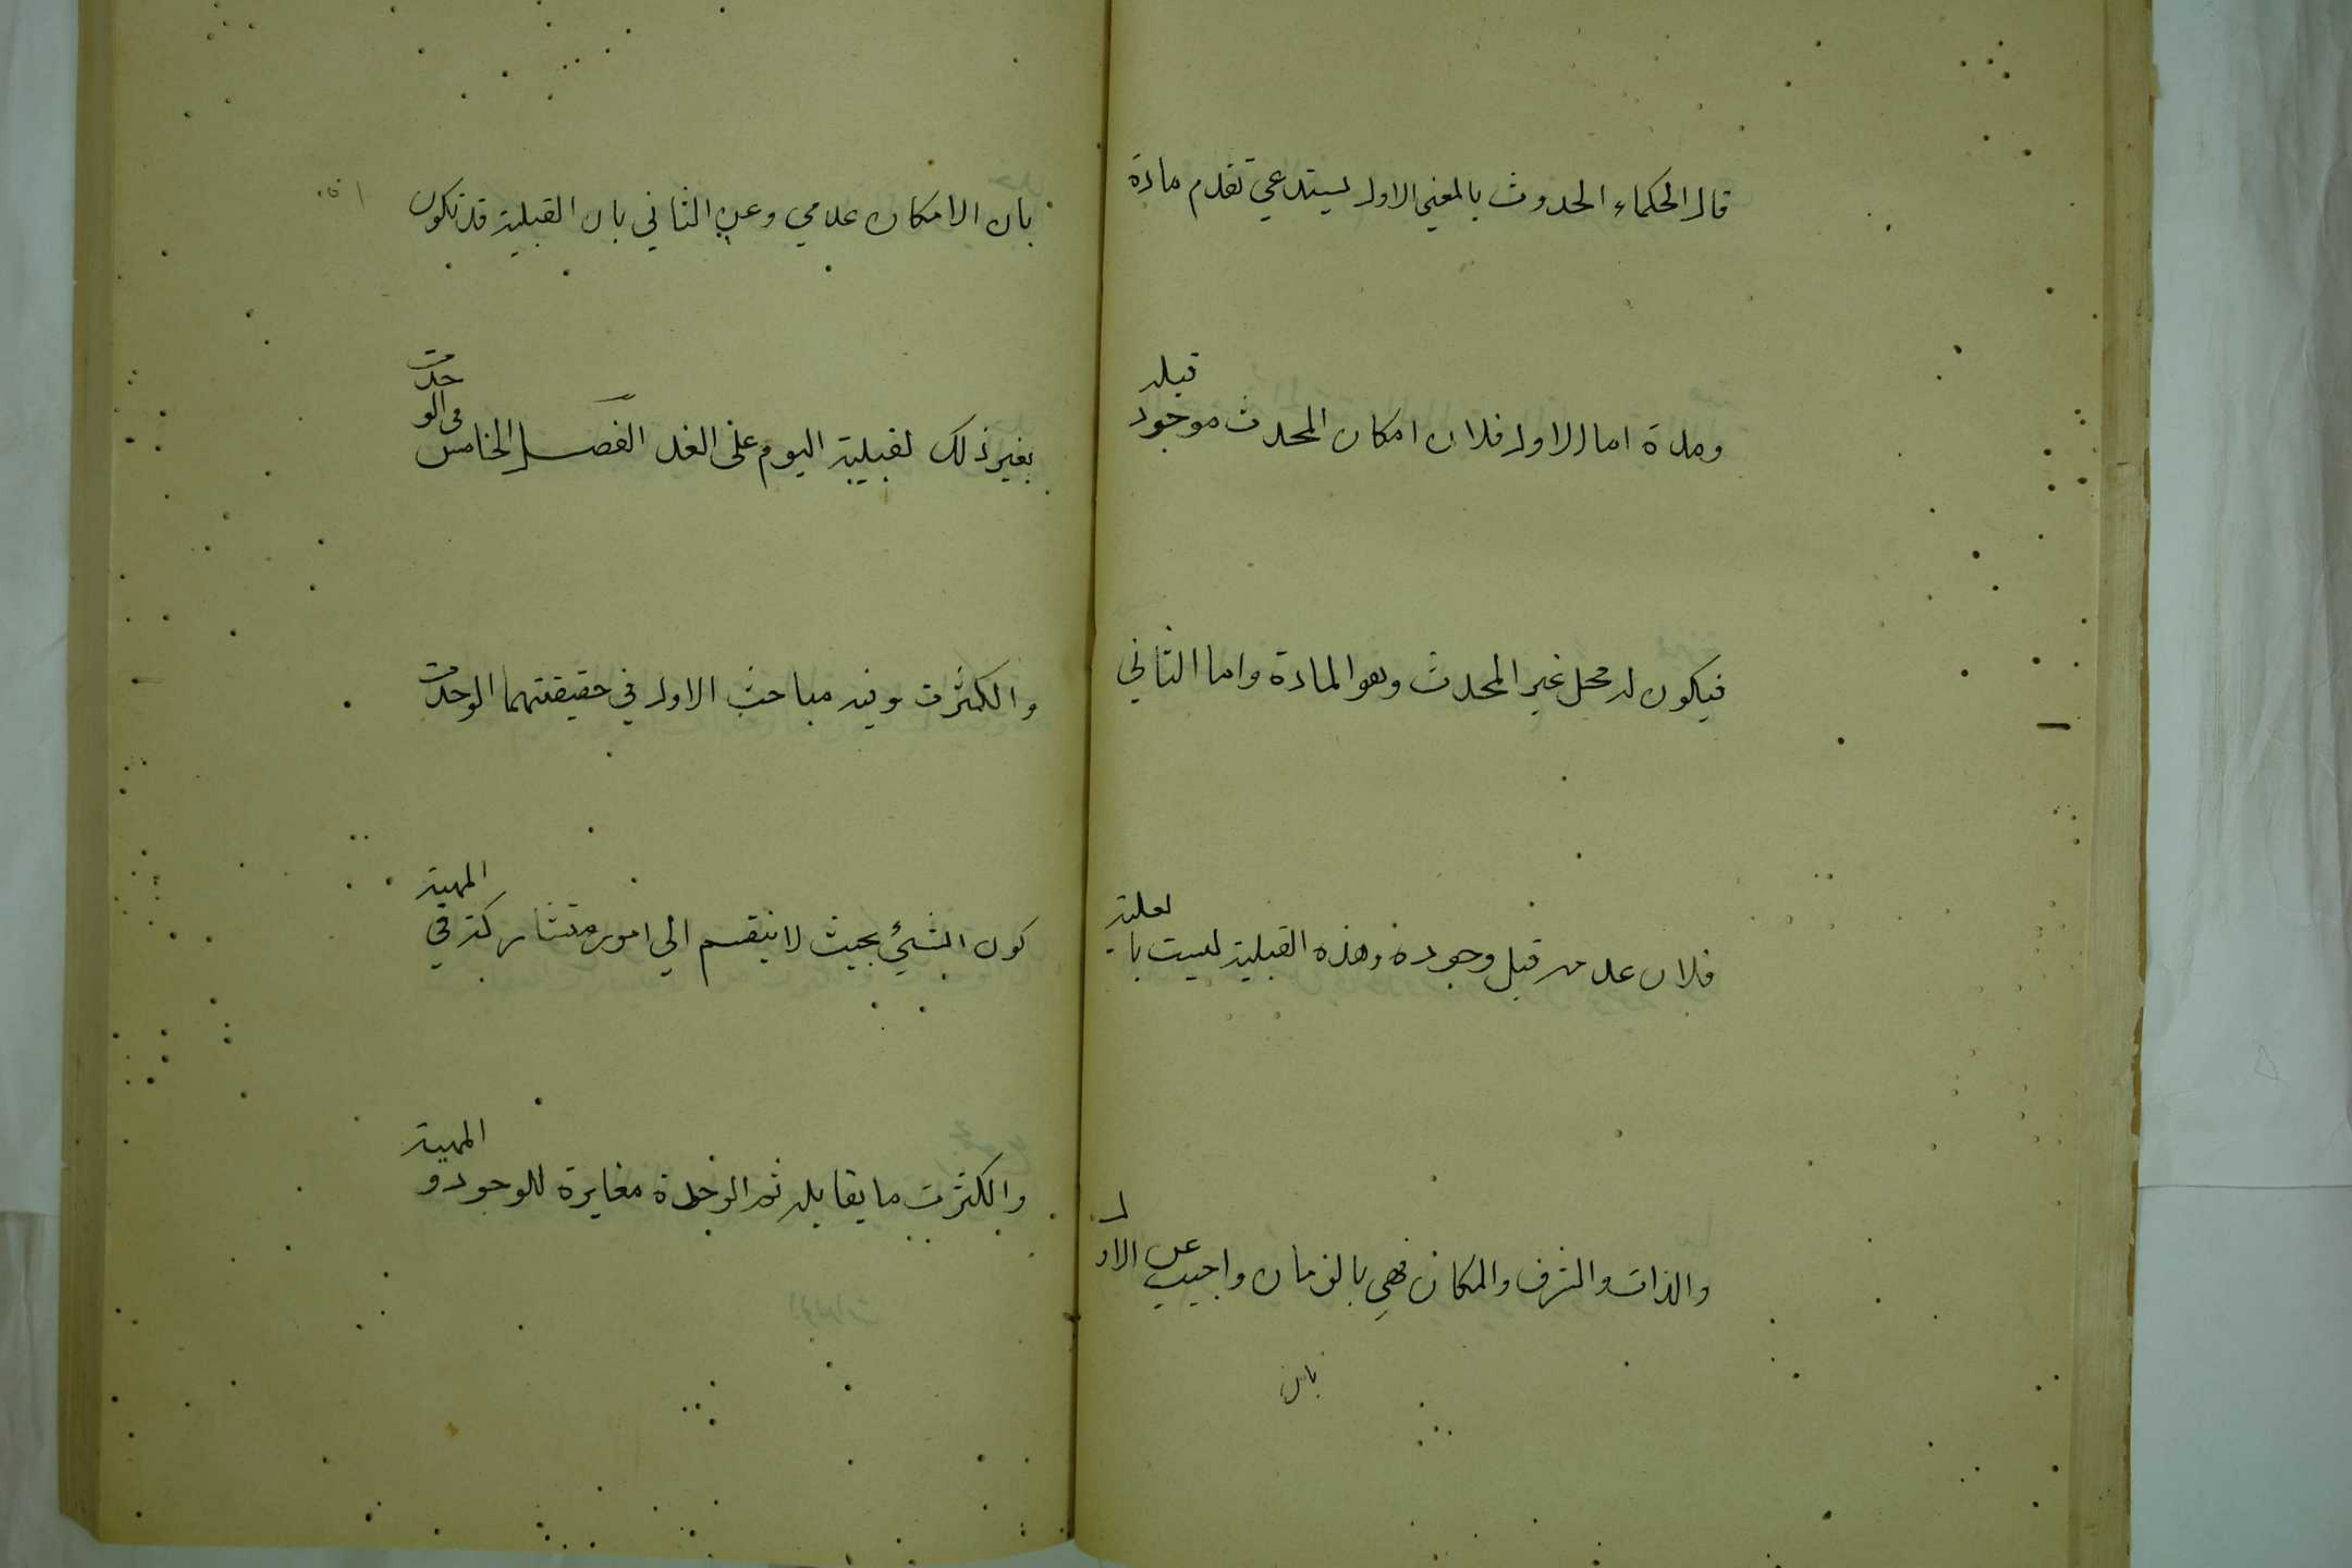 قال الحكماء الحدوث بالمعني الاول يستدعي تقدم مادة
ومدة اما الاول فلان امكان المحدث موجود قبله
فيكون له محل غير المحدث وهو المادة واما الثاني
فلان عدمه قبل وجوده وهذه القبلية ليست بالعلية
والذات والشرف والمكان فهي بالزمان واجيب عن الاول
بان
بان الامكان عدمي وعن الثاني بان القبلية قد تكون
بغير ذلك لقبلية اليوم علي الغد الفصل الخامس في الوحدت
والكثرت وفيه مباحث الاول في حقيقتهما الوحدت
كون الشيئ بحيث لا ينقسم الي امور متشاركة في المهية
والكثرت ما يقابله ثم الوحدة مغايرة للوجود و المهية